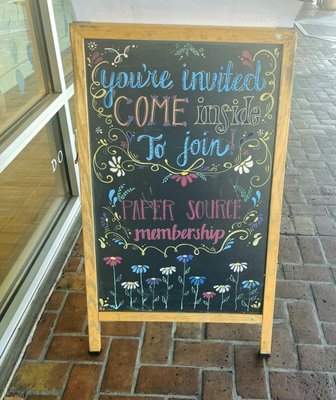 you're invited
COME inside
To join!
PAPER SOURCE
membership
DO